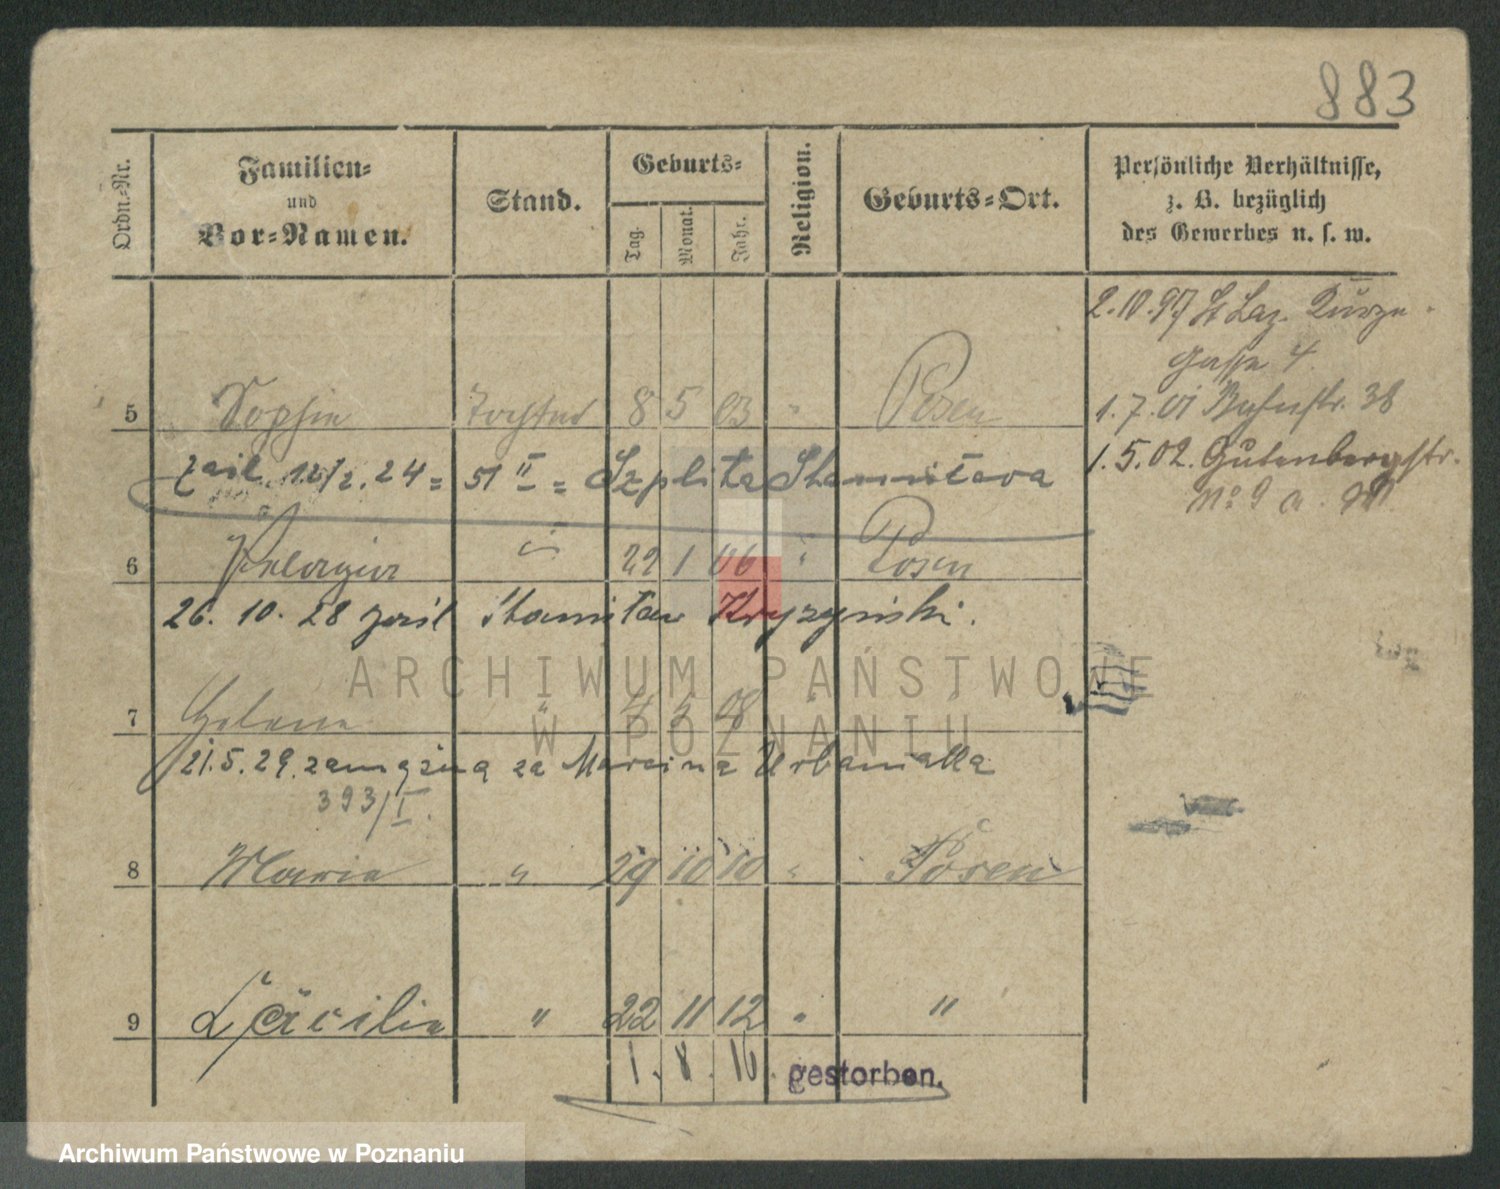 883
Ordn.-Nr.
Familien-
und
Vor-Namen.
Stand.
Geburts-
Tag.
Monat.
Jahr.
Religion.
Geburts-Ort.
Persönliche Verhältnisse,
z. B. bezüglich
des Gewerbes u. s. w.
2.10.97 St Laz. Kurze
gasse 4.
5 Sophie Tochter 8 5 03 " Posen
1.7.01 Bahnstr. 38
zaśl. 12/2. 24 = 51 II = Szplita Stanisława
1.5.02. Gutenbergstr.
No 9 a.
6 Pelagia " 22 1 06 " Posen
26. 10. 28 zaśl Stanisław Kryzyński.
7 Helene " 4 5 08 "
21.5.29. zamężna za Marcina Urbaniaka
393/I.
8 Maria " 29 10 10 " Posen
9 Cäcilie " 22 11 12 " "
1. 8. 16. gestorben.
ARCHIWUM PAŃSTWOWE
W POZNANIU
Archiwum Państwowe w Poznaniu